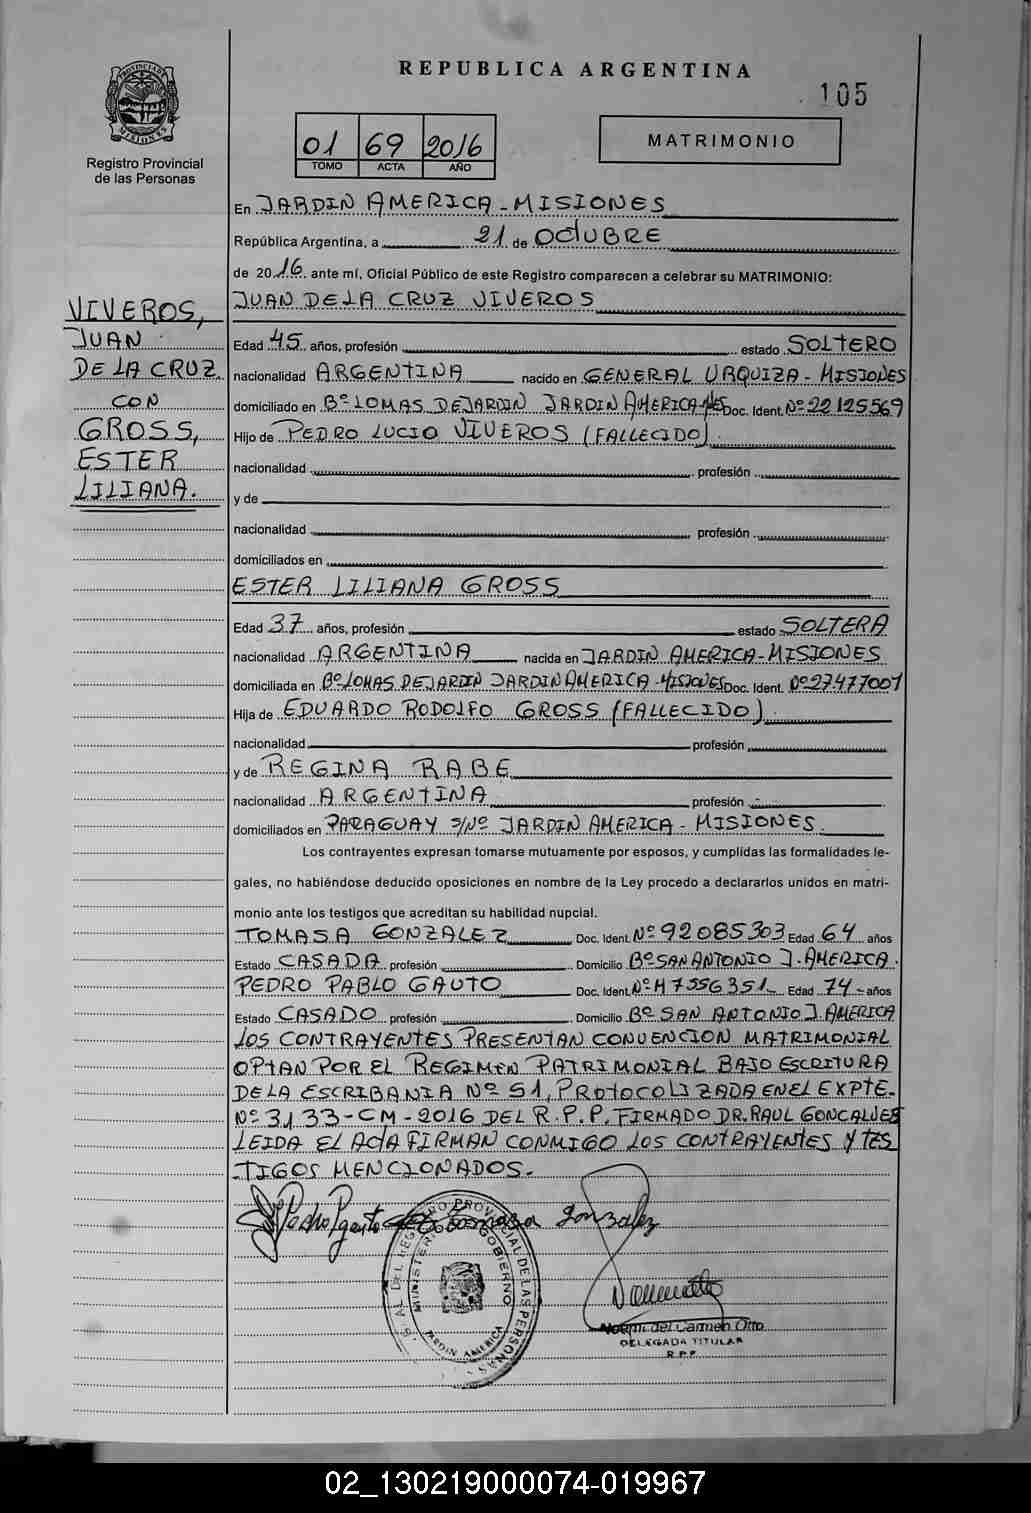 REPUBLICA ARGENTINA
105
PROVINCIA DE MISIONES
Registro Provincial
de las Personas
01 69 2016
TOMO ACTA AÑO
MATRIMONIO
En JARDIN AMERICA - MISIONES
República Argentina, a 21 de OCTUBRE
de 2016 ante mí, Oficial Público de este Registro comparecen a celebrar su MATRIMONIO:
JUAN DE LA CRUZ VIVEROS
VIVEROS,
JUAN
DE LA CRUZ
CON
GROSS,
ESTER
LILIANA.
Edad 45 años, profesión estado SOLTERO
nacionalidad ARGENTINA nacido en GENERAL URQUIZA - MISIONES
domiciliado en Bº LOMAS DE JARDIN JARDIN AMERICA - Mnes Doc. Ident. Nº 22125569
Hijo de PEDRO LUCIO VIVEROS (FALLECIDO)
nacionalidad profesión
y de
nacionalidad profesión
domiciliados en
ESTER LILIANA GROSS
Edad 37 años, profesión estado SOLTERA
nacionalidad ARGENTINA nacida en JARDIN AMERICA - MISIONES
domiciliada en Bº LOMAS DE JARDIN JARDIN AMERICA - MISIONES Doc. Ident. Nº 27477001
Hija de EDUARDO RODOLFO GROSS (FALLECIDO)
nacionalidad profesión
y de REGINA RABE
nacionalidad ARGENTINA profesión
domiciliados en PARAGUAY S/Nº JARDIN AMERICA - MISIONES
Los contrayentes expresan tomarse mutuamente por esposos, y cumplidas las formalidades le-
gales, no habiéndose deducido oposiciones en nombre de la Ley procedo a declararlos unidos en matri-
monio ante los testigos que acreditan su habilidad nupcial.
TOMASA GONZALEZ Doc. Ident. Nº 92085303 Edad 64 años
Estado CASADA profesión Domicilio Bº SAN ANTONIO J. AMERICA.
PEDRO PABLO GAUTO Doc. Ident. Nº M7556351 Edad 74 años
Estado CASADO profesión Domicilio Bº SAN ANTONIO J. AMERICA
LOS CONTRAYENTES PRESENTAN CONVENCION MATRIMONIAL
OPTAN POR EL REGIMEN PATRIMONIAL BAJO ESCRITURA
DE LA ESCRIBANIA Nº 51, PROTOCOLIZADA EN EL EXPTE.
Nº 3133-CM-2016 DEL R.P.P. FIRMADO DR. RAUL GONCALVES
LEIDA EL ACTA FIRMAN CONMIGO LOS CONTRAYENTES Y TES
TIGOS MENCIONADOS.
Pedro P gauto Tomasa Gonzalez
DEL REGISTRO PROVINCIAL DE LAS PERSONAS
MINISTERIO GOBIERNO
JARDIN AMERICA
Noemi del Carmen Otto
DELEGADA TITULAR
R.P.P.
02_130219000074-019967